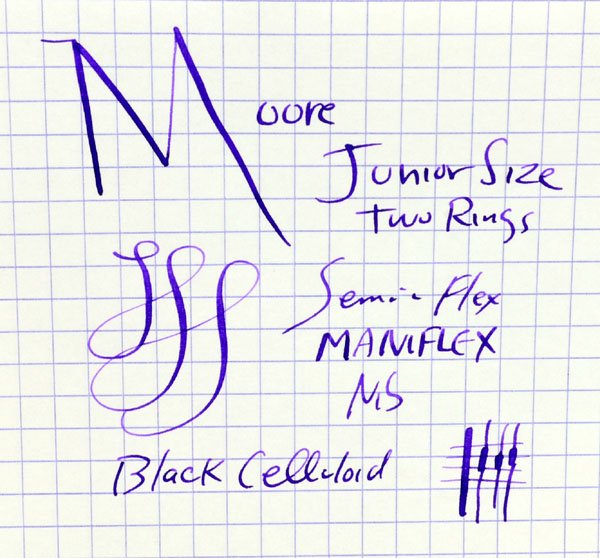 Moore
Junior Size
Two Rings
Semi-Flex
MANIFLEX
Black Celluloid